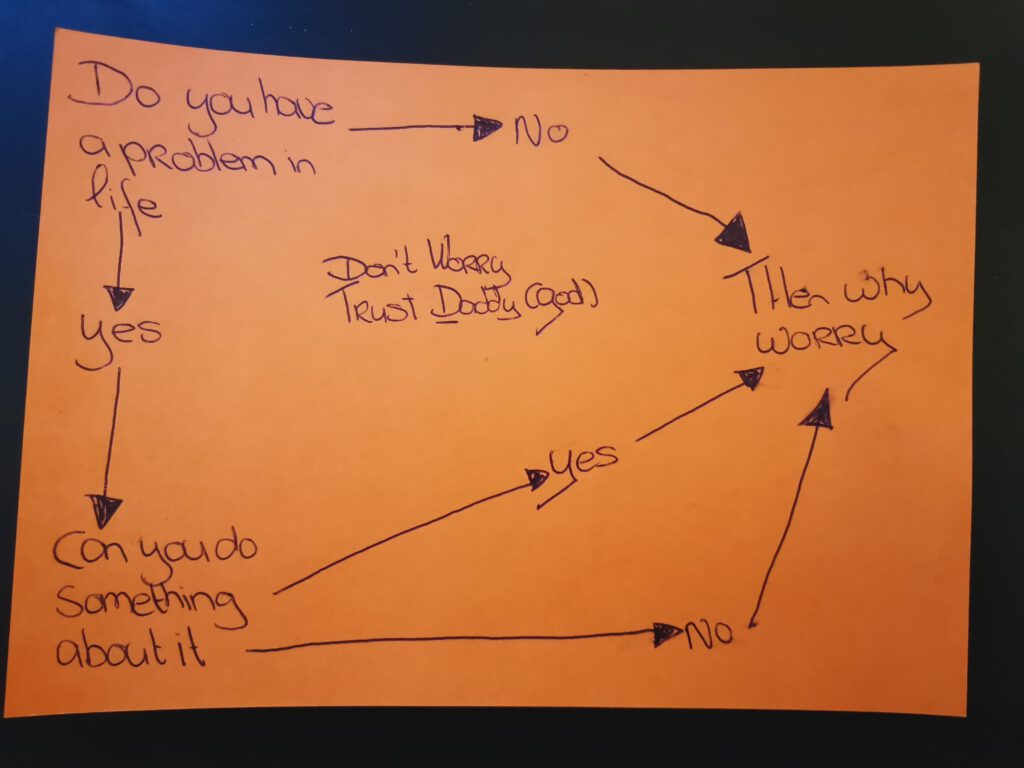 Do you have
a problem in
life
No
Don't Worry
Trust Daddy (god)
Then why
worry
yes
yes
Can you do
something
about it
No